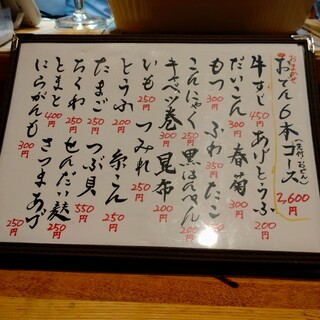 おまかせ
おでん6本コース
(先付おでん)
2,600円
牛すじ 450円 あげとうふ 200円
だいこん 300円 春菊 300円
もつ 300円 ふわ 350円 たこ
こんにゃく 黒はんぺん
キャベツ巻 300円 昆布
いも 250円 つみれ
とうふ 200円 糸こん 200円
たまご 250円 つぶ貝 550円
ちくわ 250円 せんだい麩 250円
とまと 400円 さつまあげ 250円
にらがんも 300円